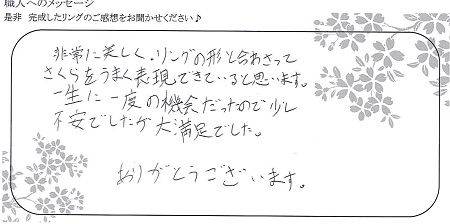 職人へのメッセージ
是非 完成したリングのご感想をお聞かせください♪
非常に美しく、リングの形と合わさって
さくらをうまく表現できていると思います。
一生に一度の機会だったので少し
不安でしたが大満足でした。
ありがとうございます。